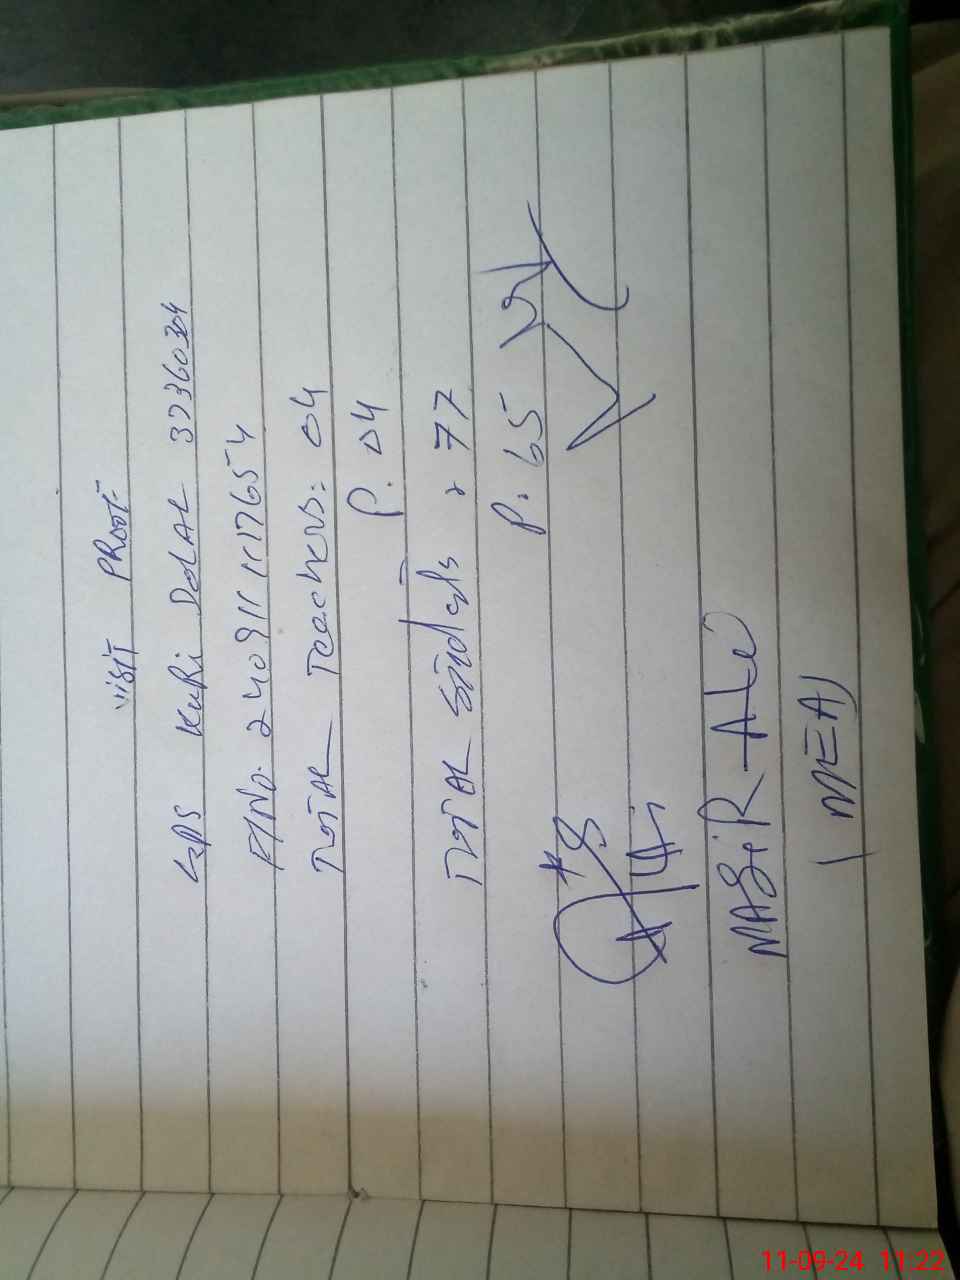 VISIT PROOF
GPS KuRi DOLAL 37360304
F/No. 240911117654
TOTAL Teachers: 04
P. 04
TOTAL Students , 77
P. 65
NASiR ALi
(MEA)
11-09-24 11:22